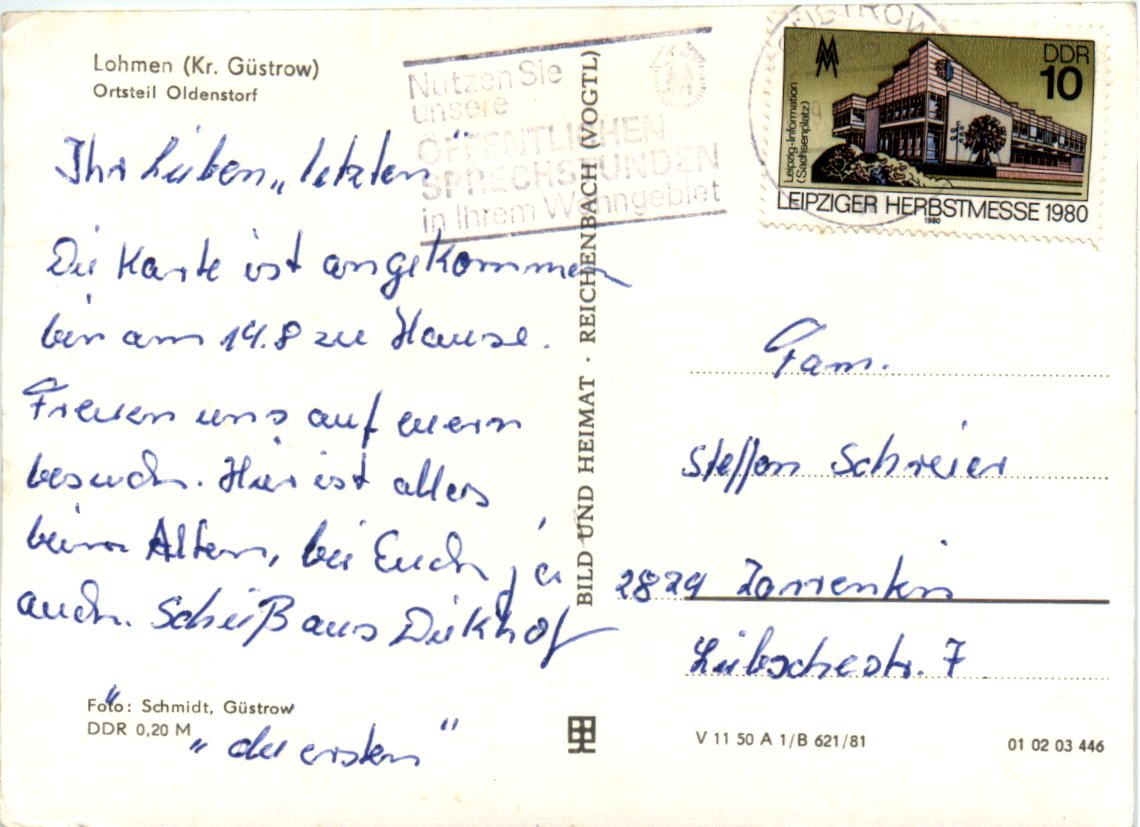 Lohmen (Kr. Güstrow)
Ortsteil Oldenstorf
Nutzen Sie
unsere
ÖFFENTLICHEN
SPRECHSTUNDEN
in Ihrem Wohngebiet
GÜSTROW
DDR
10
Leipzig-Information
(Sachsenplatz)
LEIPZIGER HERBSTMESSE 1980
1980
Ihr lieben „letzten"
Die Karte ist angekommen
bin am 14.8 zu Hause.
Freuen uns auf euern
besuch. Hier ist alles
beim Alten, bei Euch ja
auch. aus
"
„die ersten"
Foto: Schmidt, Güstrow
DDR 0,20 M
BILD UND HEIMAT · REICHENBACH (VOGTL)
Fam.
Steffen Schreier
Zarrentin
Lübschestr. 7
V 11 50 A 1/B 621/81
01 02 03 446